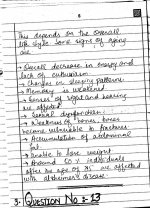 8
This depends on the overall
life style. Some signs of aging
are.
→ Overall decrease in energy and
lack of enthusiasm.
→ Changes in sleeping patterns
→ Memory is weakened
→ Senses of sight and hearing
is affected
→ Sexual dysfunction.
→ Weakness of bones, bones
become vulnerable to fractures
→ Accumulation of abdominal
fat
→ Unable to lose weight
→ Around 50% individuals
after the age of 85 are affected
with alzheimer's disease
3. QUESTION No : 13